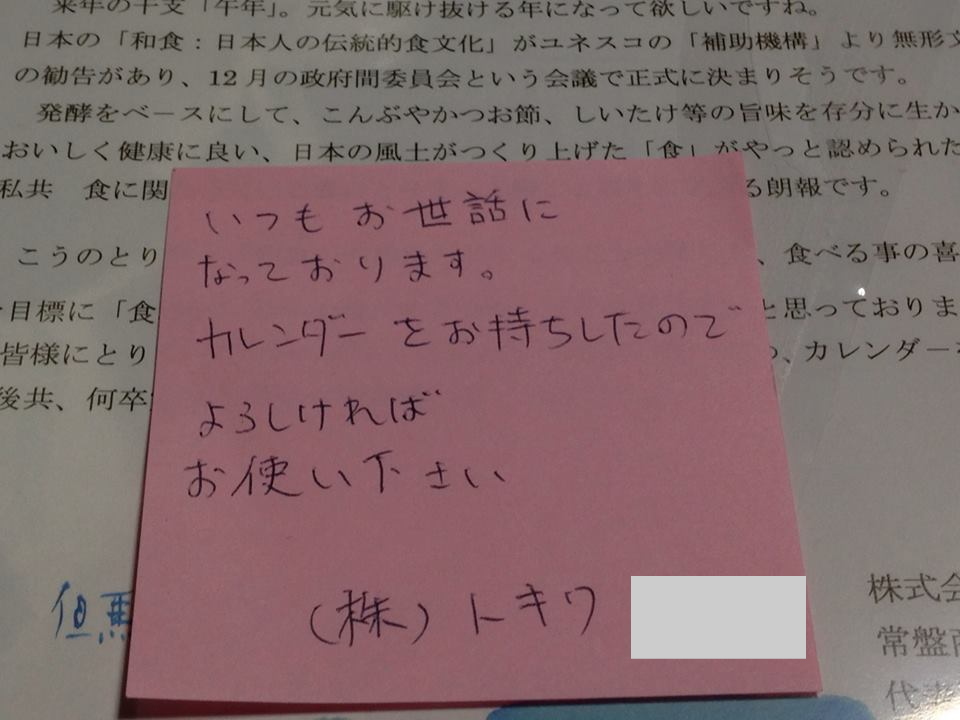 来年の干支「午年」。元気に駆け抜ける年になって欲しいですね。
日本の「和食：日本人の伝統的食文化」がユネスコの「補助機構」より無形文
の勧告があり、12月の政府間委員会という会議で正式に決まりそうです。
発酵をベースにして、こんぶやかつお節、しいたけ等の旨味を存分に生か
おいしく健康に良い、日本の風土がつくり上げた「食」がやっと認められた
私共 食に関
る朗報です。
こうのとり
、食べる事の喜
目標に「食
と思っておりま
皆様にとり
、カレンダーを
後共、何卒
いつもお世話に
なっております。
カレンダーをお持ちしたので
よろしければ
お使い下さい
(株)トキワ
但馬
株式会
常盤商
代表